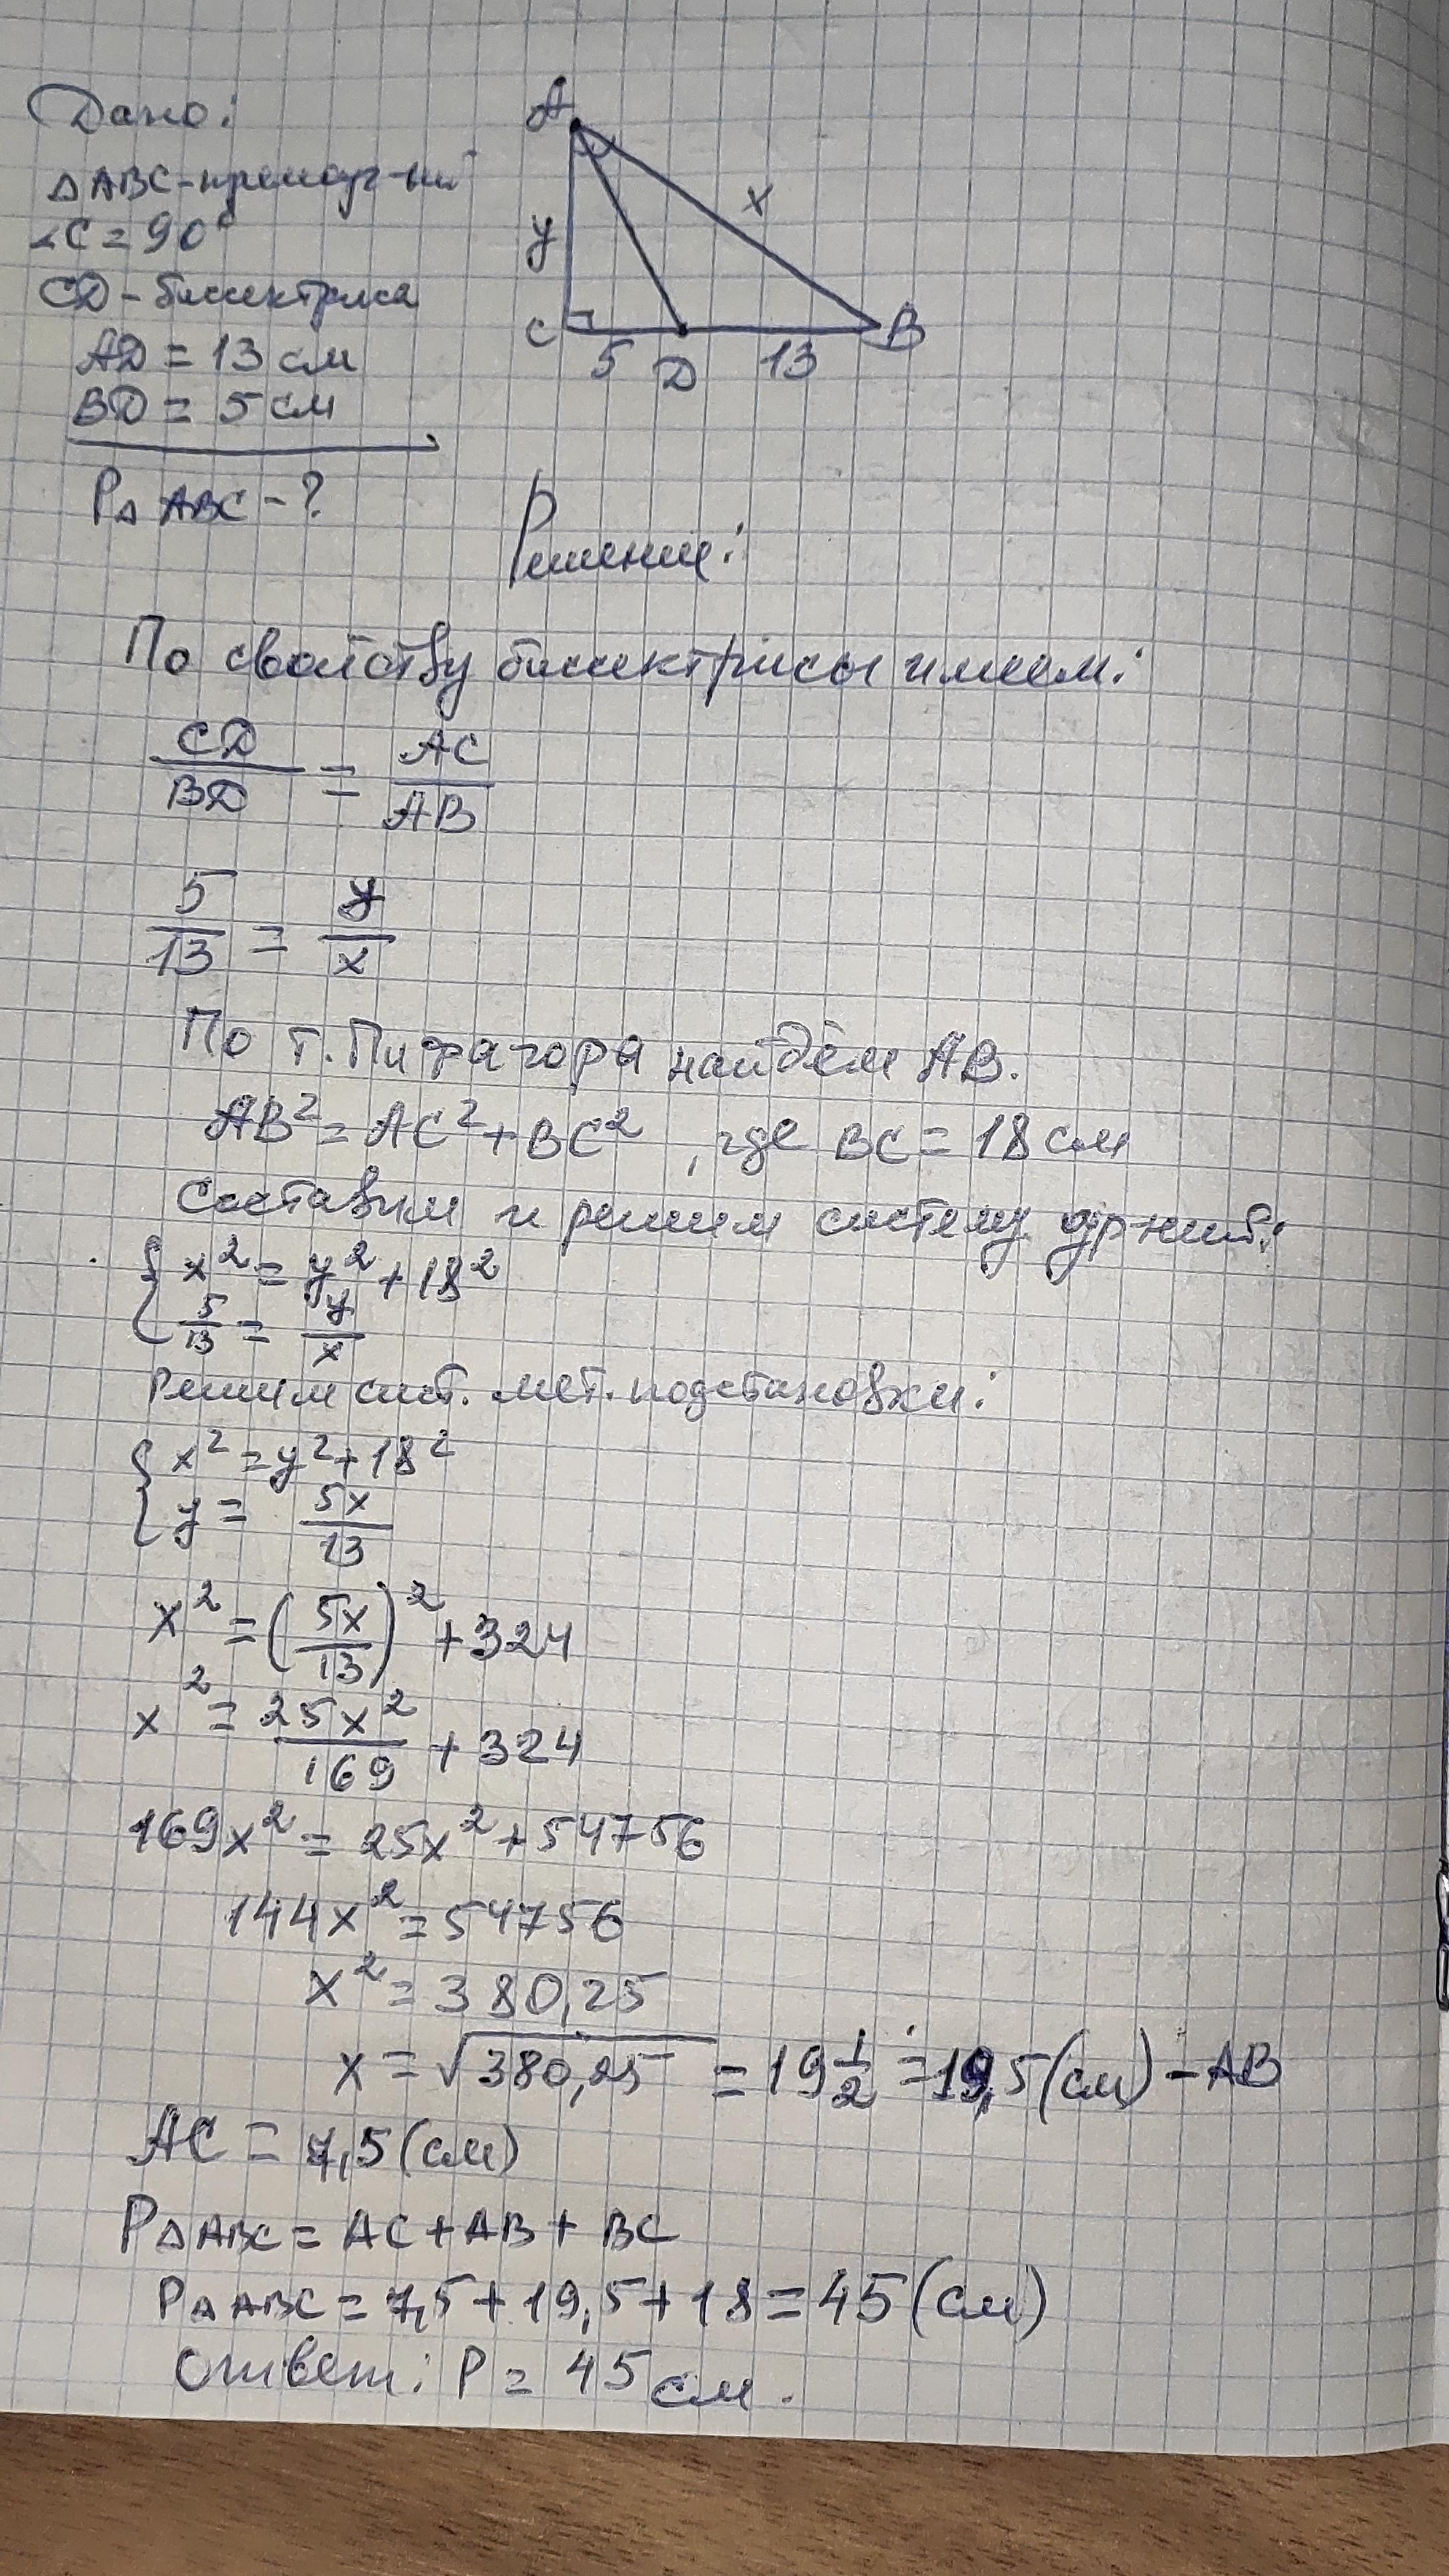 Дано:
△ABC-прямоуг-ый
∠C = 90°
CD - биссектриса
AD = 13 см
BD = 5 см
P△ABC - ?
A
x
y
C
5
D
13
B
Решение:
По свойству биссектрисы имеем:
CD/BD = AC/AB
5/13 = y/x
По т. Пифагора найдём AB.
AB² = AC² + BC², где BC = 18 см
Составим и решим систему ур-ний:
{ x² = y² + 18²
{ 5/13 = y/x
Решим сист. мет. подстановки:
{ x² = y² + 18²
{ y = 5x/13
x² = (5x/13)² + 324
x² = 25x²/169 + 324
169x² = 25x² + 54756
144x² = 54756
x² = 380,25
x = √380,25 = 19 1/2 = 19,5 (см) - AB
AC = 7,5 (см)
P△ABC = AC + AB + BC
P△ABC = 7,5 + 19,5 + 18 = 45 (см)
Ответ: P = 45 см.